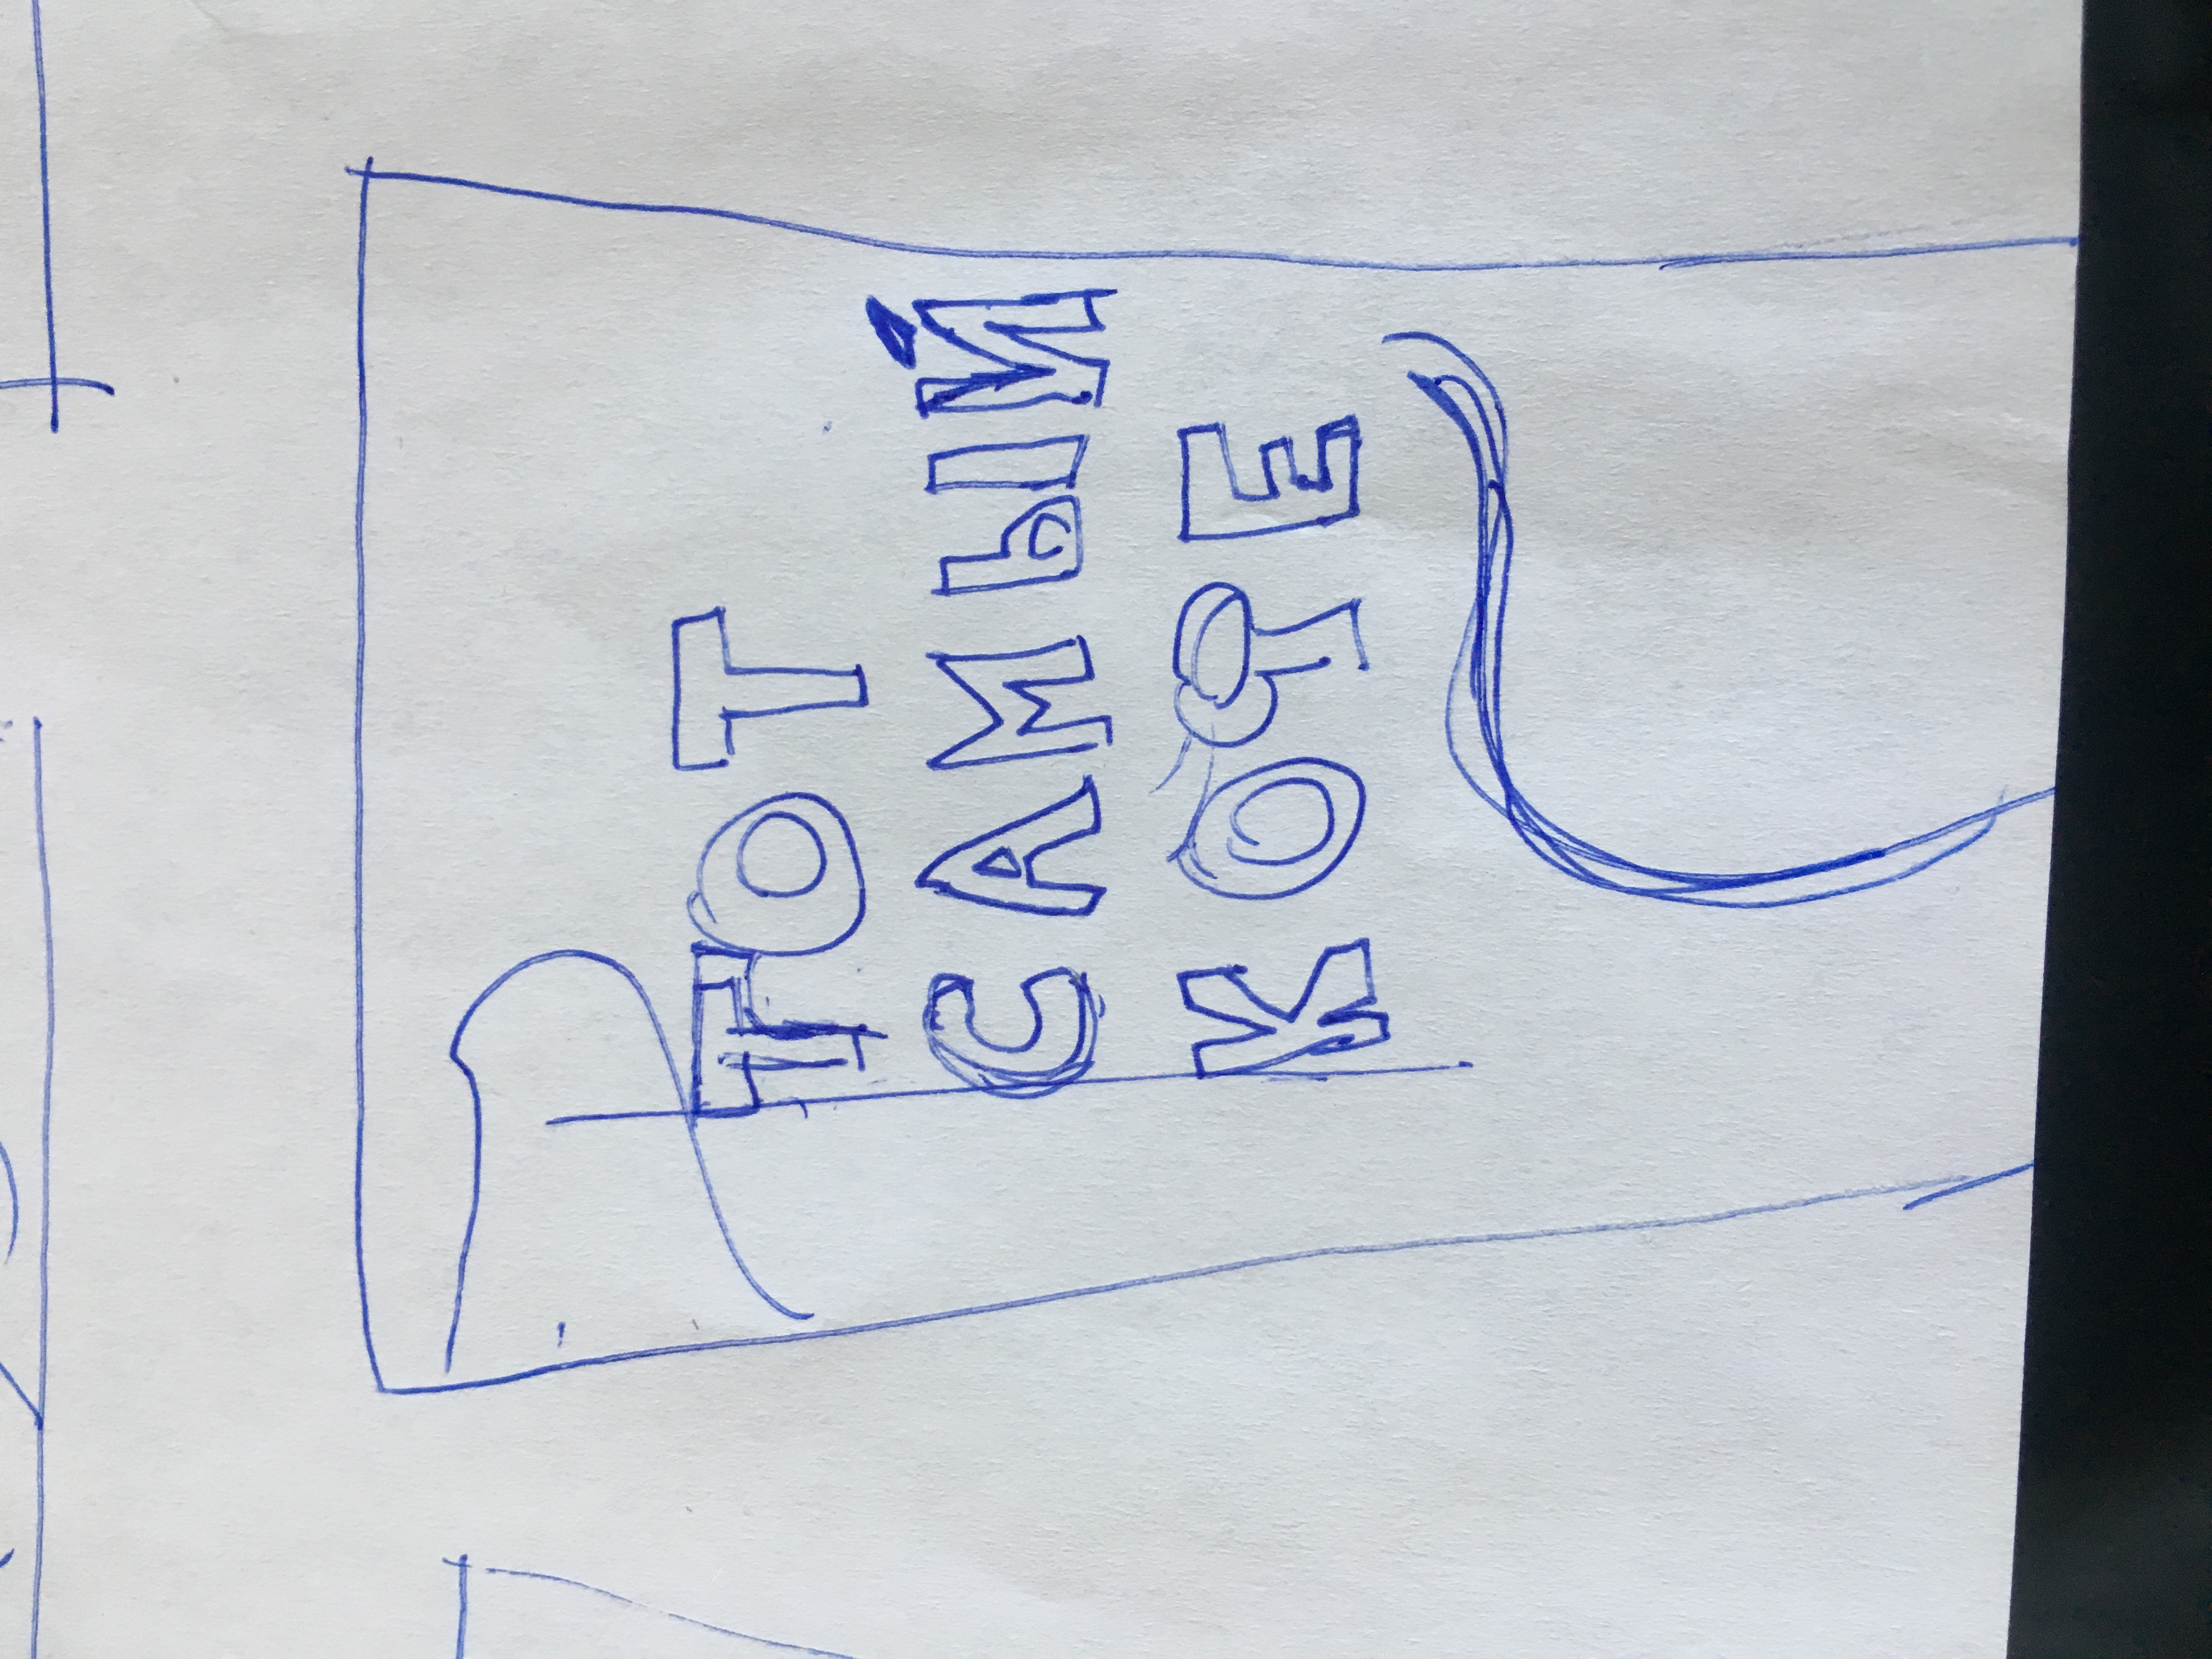 ТОТ
САМЫЙ
КОФЕ